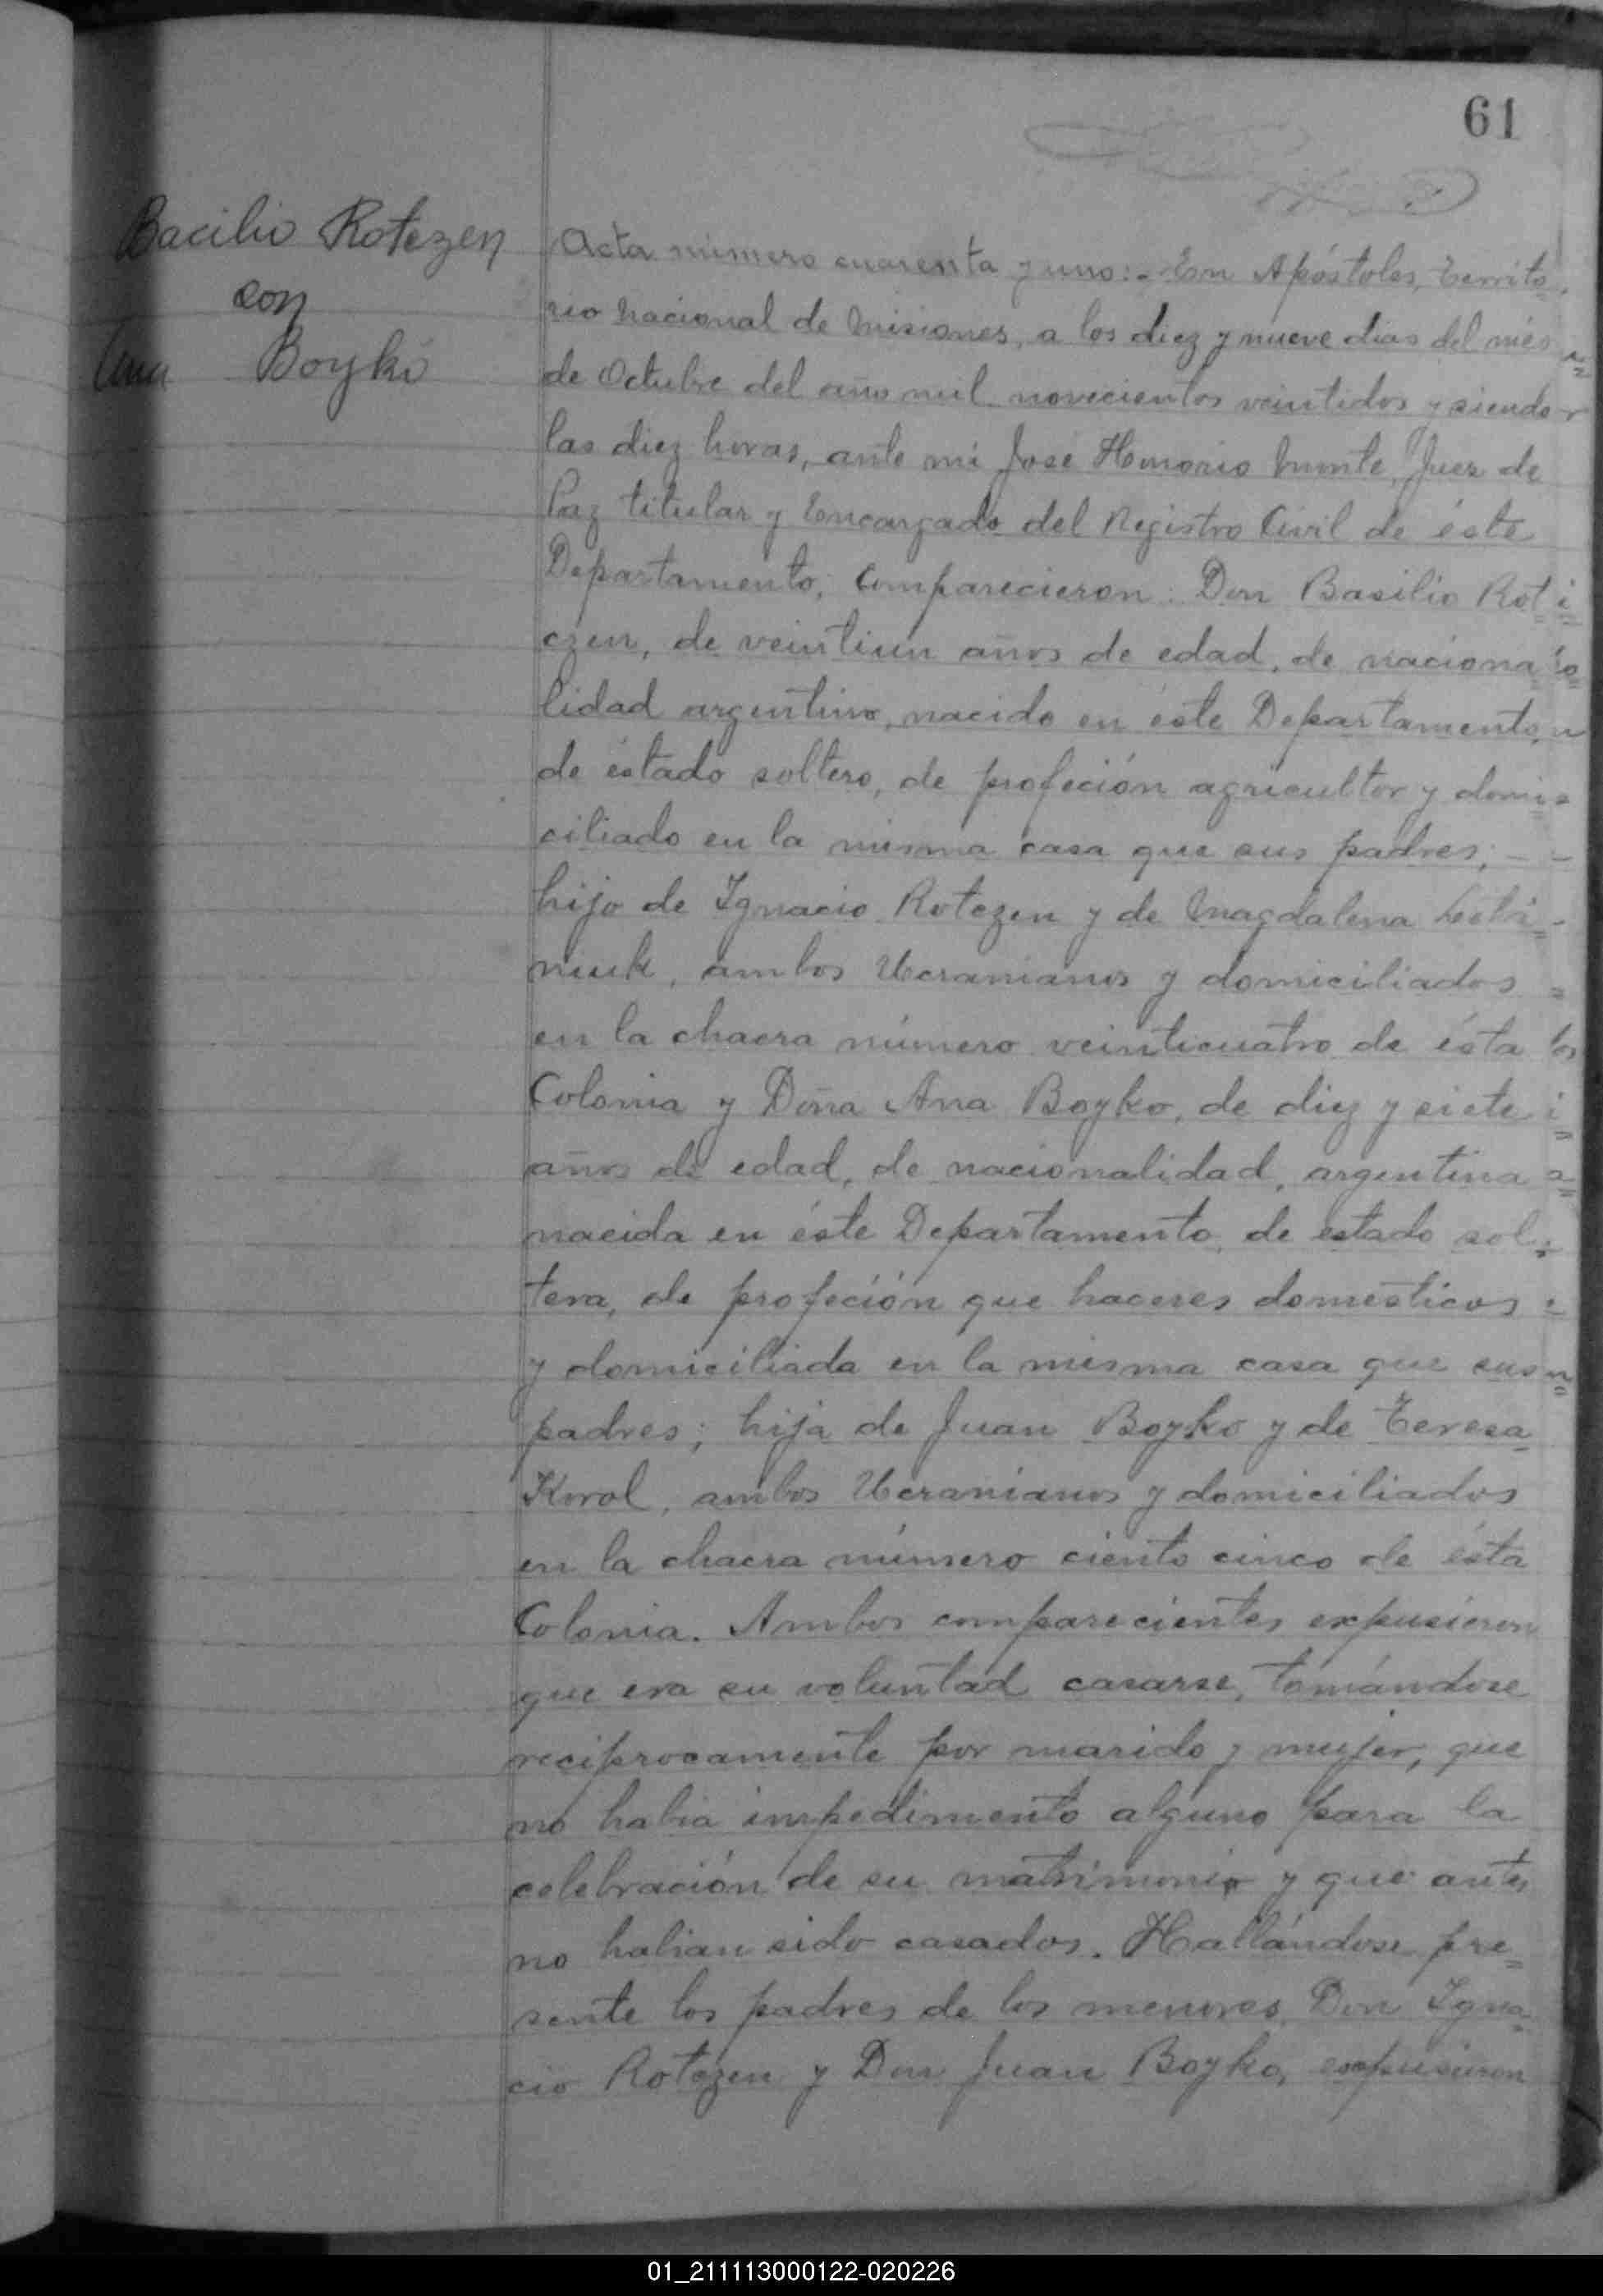 61
Bacilio Rotezen
con
Ana Boyko
Acta número cuarenta y uno:- En Apóstoles, Territo-
rio Nacional de Misiones, a los diez y nueve dias del més
de Octubre del año mil novecientos veintidos y siendo
las diez horas, ante mi José Honorio, Juez de
Paz titular y Encargado del Registro Civil de éste
Departamento; Comparecieron: Don Basilio Rot
czen, de veintiun años de edad, de naciona
lidad argentino, nacido en éste Departamento,
de éstado soltero, de profeción agricultor y domi-
ciliado en la misma casa que sus padres; -
hijo de Ignacio Rotczen y de Magdalena
niuk, ambos Ucranianos y domiciliados
en la chacra número veinticuatro de ésta
Colonia y Doña Ana Boyko, de diez y siete
años de edad, de nacionalidad, argentina
nacida en éste Departamento, de estado sol-
tera, de profeción que haceres domésticos
y domiciliada en la misma casa que sus
padres; hija de Juan Boyko y de Teresa
Korol, ambos Ucranianos y domiciliados
en la chacra número ciento cinco de ésta
Colonia. Ambos comparecientes expusieron
que era su voluntad casarse, tomándose
reciprocamente por marido y mujer, que
no habia impedimento alguno para la
celebración de su matrimonio y que antes
no habian sido casados. Hallándose pre=
sente los padres de los menores, Don Igna-
cio Rotczen y Don Juan Boyko, expusieron
01_211113000122-020226